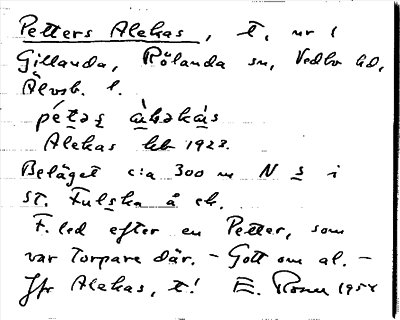 Petters Alekas, t, nr 1
Gillanda, Rölanda sn, Vedbo hd,
Älvsb. l.
Alekas leb 1923.
Beläget c:a 300 m N s i
St. Fulska å ek.
F. led efter en Petter, som
var torpare där. - Gott om al. -
Jfr Alekas, t! E. 1954